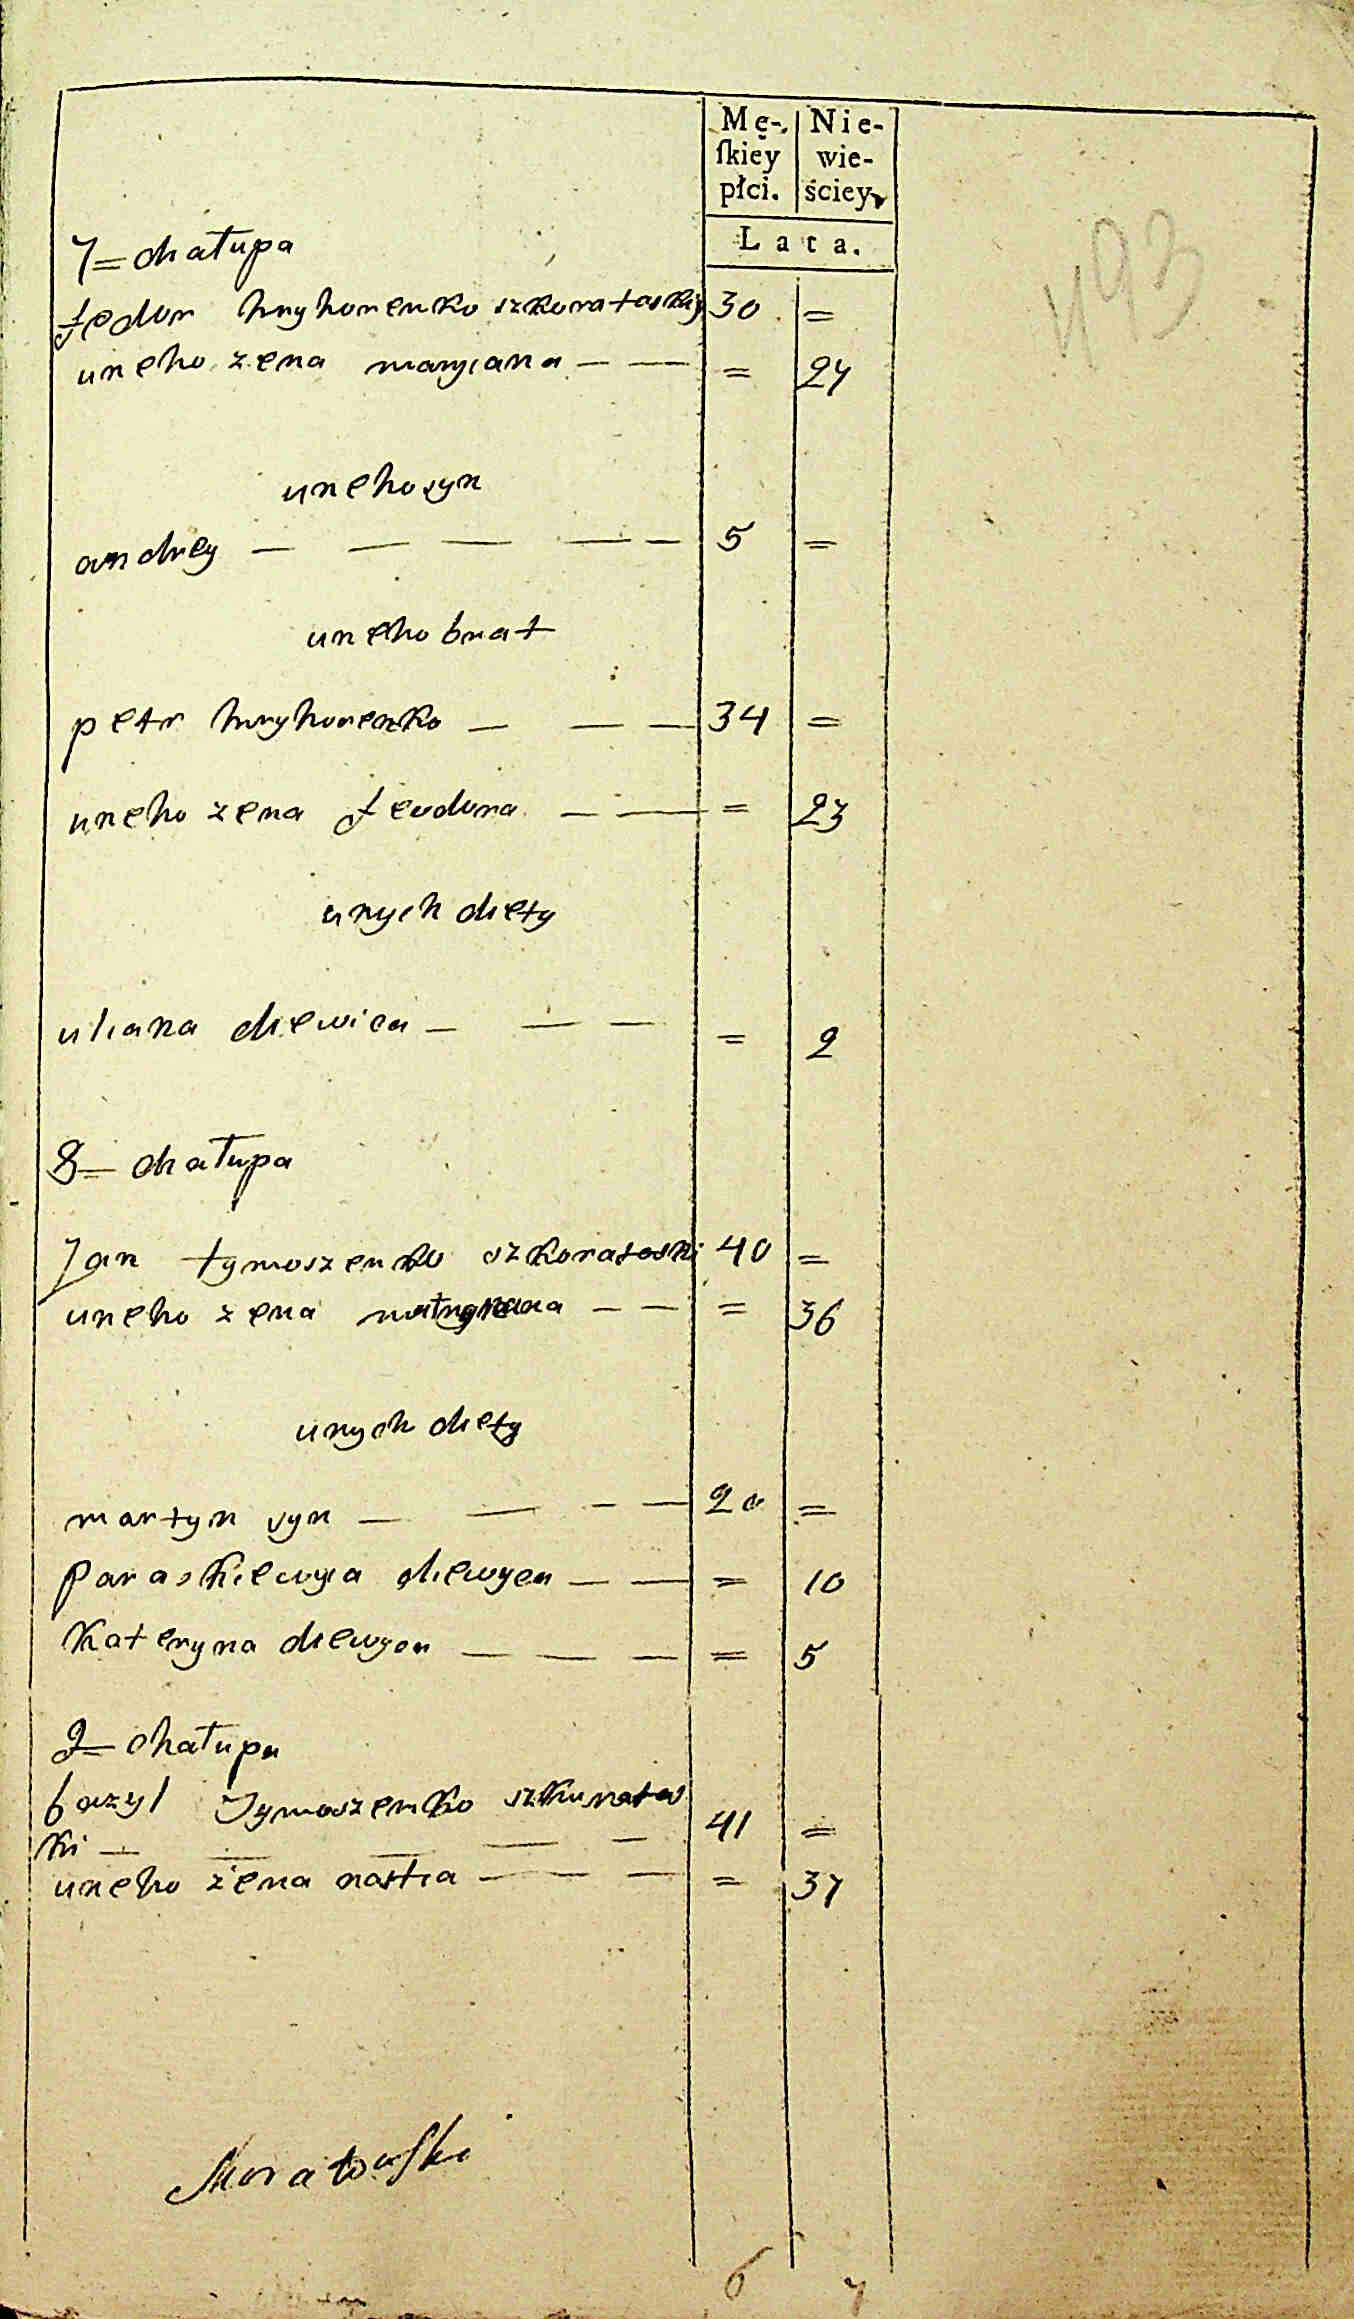 Mę-
ſkiey
płci.
Nie-
wie-
ściey
Lata.
493
7= chałupa
fedor hryhorenko szkoratoskiy 30 =
uneho zena maryiana — — = 27
uneho syn
andrey — — — — — 5 =
uneho brat
petr hryhorenko — — — 34 =
uneho zena feodora — — = 23
unych diety
uliana diewica — — — = 2
8= chałupa
Jan tymoszenko szkoratoski 40 =
uneho zena — — = 36
unych diety
martyn syn — — — — 20 =
paraskiewyia diewyca — — = 10
Kateryna diewyca — — — = 5
9= chałupa
bazyl Tymoszenko szkuratow
ki — — — — — 41 =
uneho żena nastia — — — = 37
Skoratowski
6 7